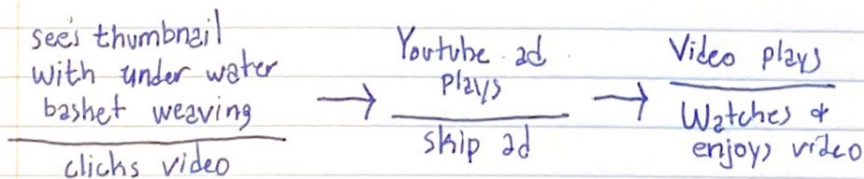 see's thumbnail
with under water
basket weaving
clicks video
Youtube ad
plays
skip ad
Video plays
Watches &
enjoys video